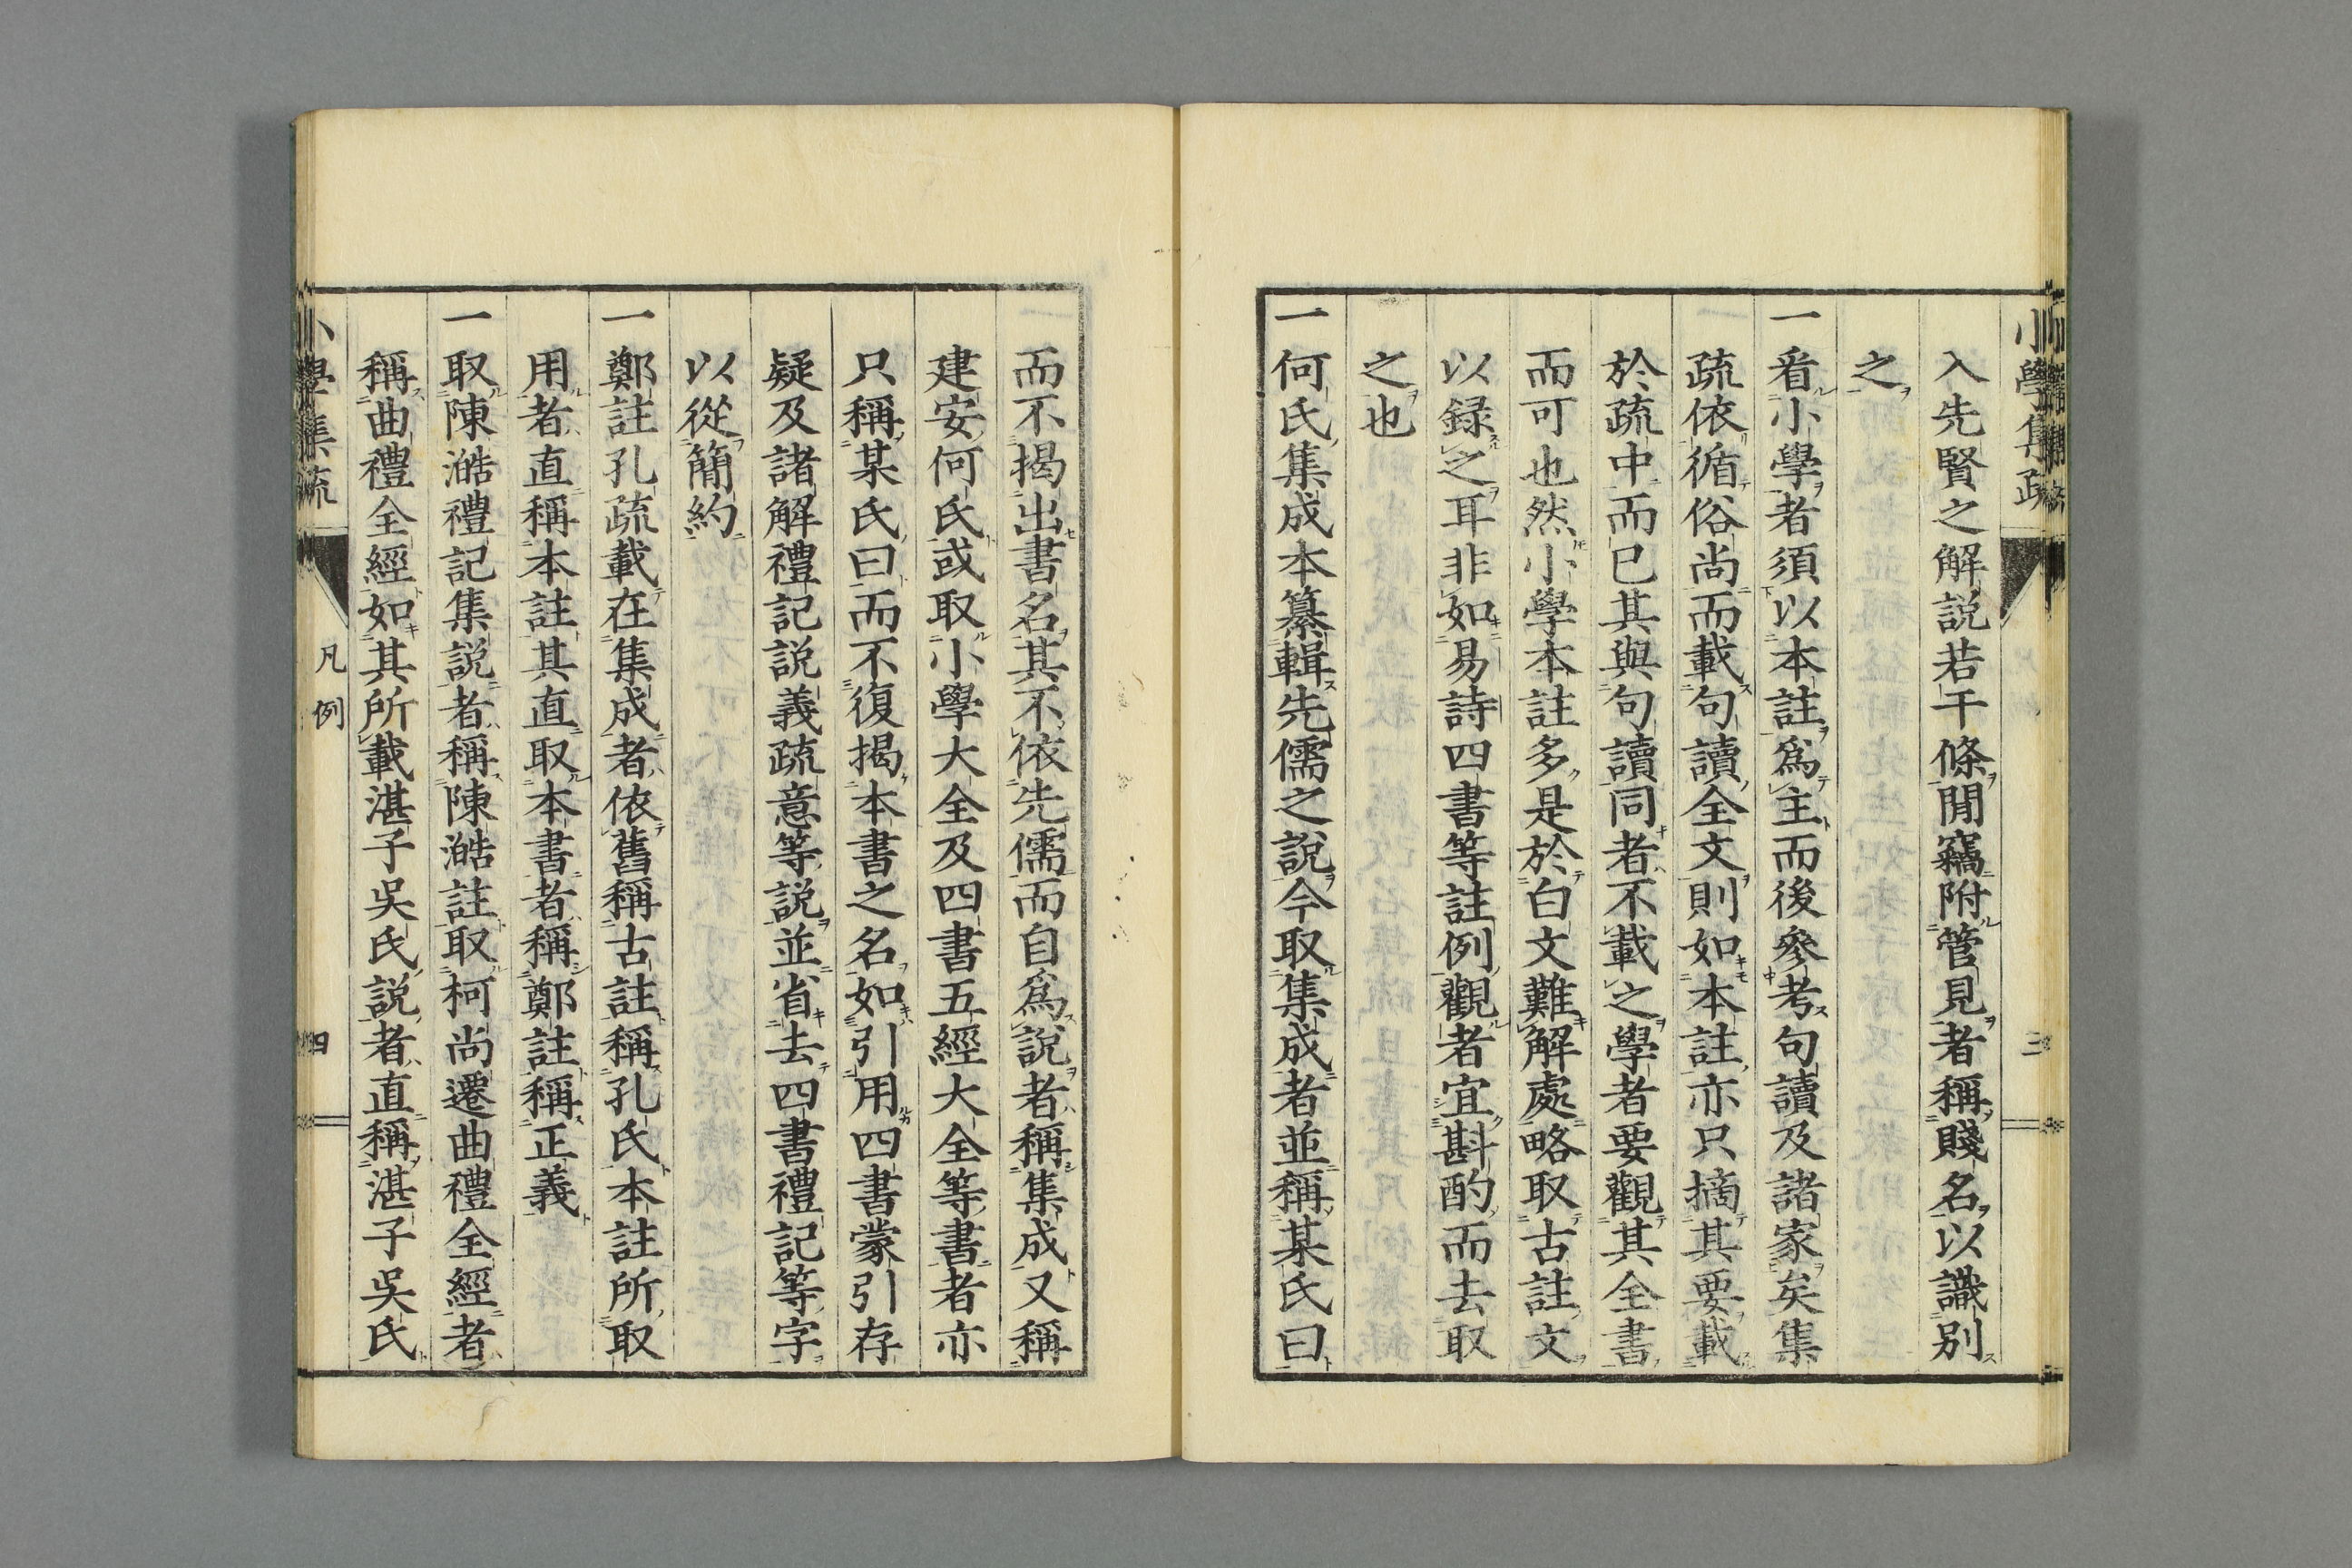 小學集疏
三
入先賢之解説若干條閒竊附管見者稱賤名以識別
之
一看小學者須以本註爲主而後參考句讀及諸家矣集
疏依循俗尚而載句讀全文則如本註亦只摘其要載
於疏中而已其與句讀同者不載之學者要觀其全書
而可也然小學本註多是於白文難解處略取古註文
以録之耳非如易詩四書等註例觀者宜斟酌而去取
之也
一何氏集成本纂輯先儒之說今取集成者並稱某氏曰
而不揭出書名其不依先儒而自爲說者稱集成又稱
建安何氏或取小學大全及四書五經大全等書者亦
只稱某氏曰而不復揭本書之名如引用四書蒙引存
疑及諸解禮記説義疏意等説並省去四書禮記等字
以從簡約
一鄭註孔疏載在集成者依舊稱古註稱孔氏本註所取
用者直稱本註其直取本書者稱鄭註稱正義
一取陳澔禮記集説者稱陳澔註取柯尚遷曲禮全經者
稱曲禮全經如其所載湛子吳氏説者直稱湛子吳氏
小學集疏
凡例
四